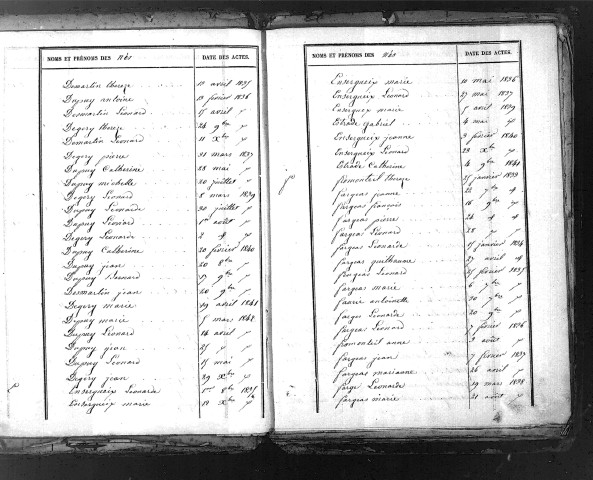 NOMS ET PRÉNOMS DES Nés DATE DES ACTES.
Demartin thereze 10 avril 1835
Dupuy antoine 10 février 1836
Desmartin Léonard 15 avril "
Degery thereze 24 9bre "
Demartin Léonard 11 Xbre "
Degery pierre 31 mars 1837
Dupuy Catherine 28 mai "
Dupuy michelle 20 juillet "
Degery Léonard 8 mars 1839
Dupuy Léonarde 30 juillet "
Dupuy Léonard 1er août "
Degery Léonarde 2 "
Dupuy Catherine 20 février 1840
Dupuy jean 20 8bre "
Dupuy Bernard 27 9bre "
Desmartin jean 20 9bre "
Degery marie 29 avril 1841
Dupuy marie 5 mars 1842
Dupuy Léonard 16 avril "
Dupuy jean 25 " "
Dupuy Léonard 15 mai "
Degery jean 29 Xbre "
Ensergueix Léonarde 1er 8bre 1835
Ensergueix marie 18 Xbre "
NOMS ET PRÉNOMS DES Nés DATE DES ACTES.
Ensergueix marie 10 mai 1836
Ensergueix Léonard 27 mai 1837
Ensergueix marie 7 avril 1839
Estrade gabriel 4 mai "
Ensergueix jeanne 9 février 1840
Ensergueix Léonard 28 Xbre "
Estrade Catherine 4 9bre 1841
fromonteil thereze 25 janvier 1833
fargeas jeanne 22 7bre "
fargeas françois 16 9bre "
fargeas pierre 24 "
fargeas Léonard 28 "
fargeas Léonarde 15 janvier 1834
fargeas guilhaume 27 avril "
fargeas Léonard 25 février 1835
fargeas marie 6 7bre "
faurie antoinette 20 7bre "
farges Léonarde 20 9bre "
fargeas Léonard 7 février 1836
fromonteil anne 2 août "
fargeas jean 7 février 1837
fargeas marianne 26 avril "
farge Léonarde 19 mars 1838
fargeas marie 21 août "